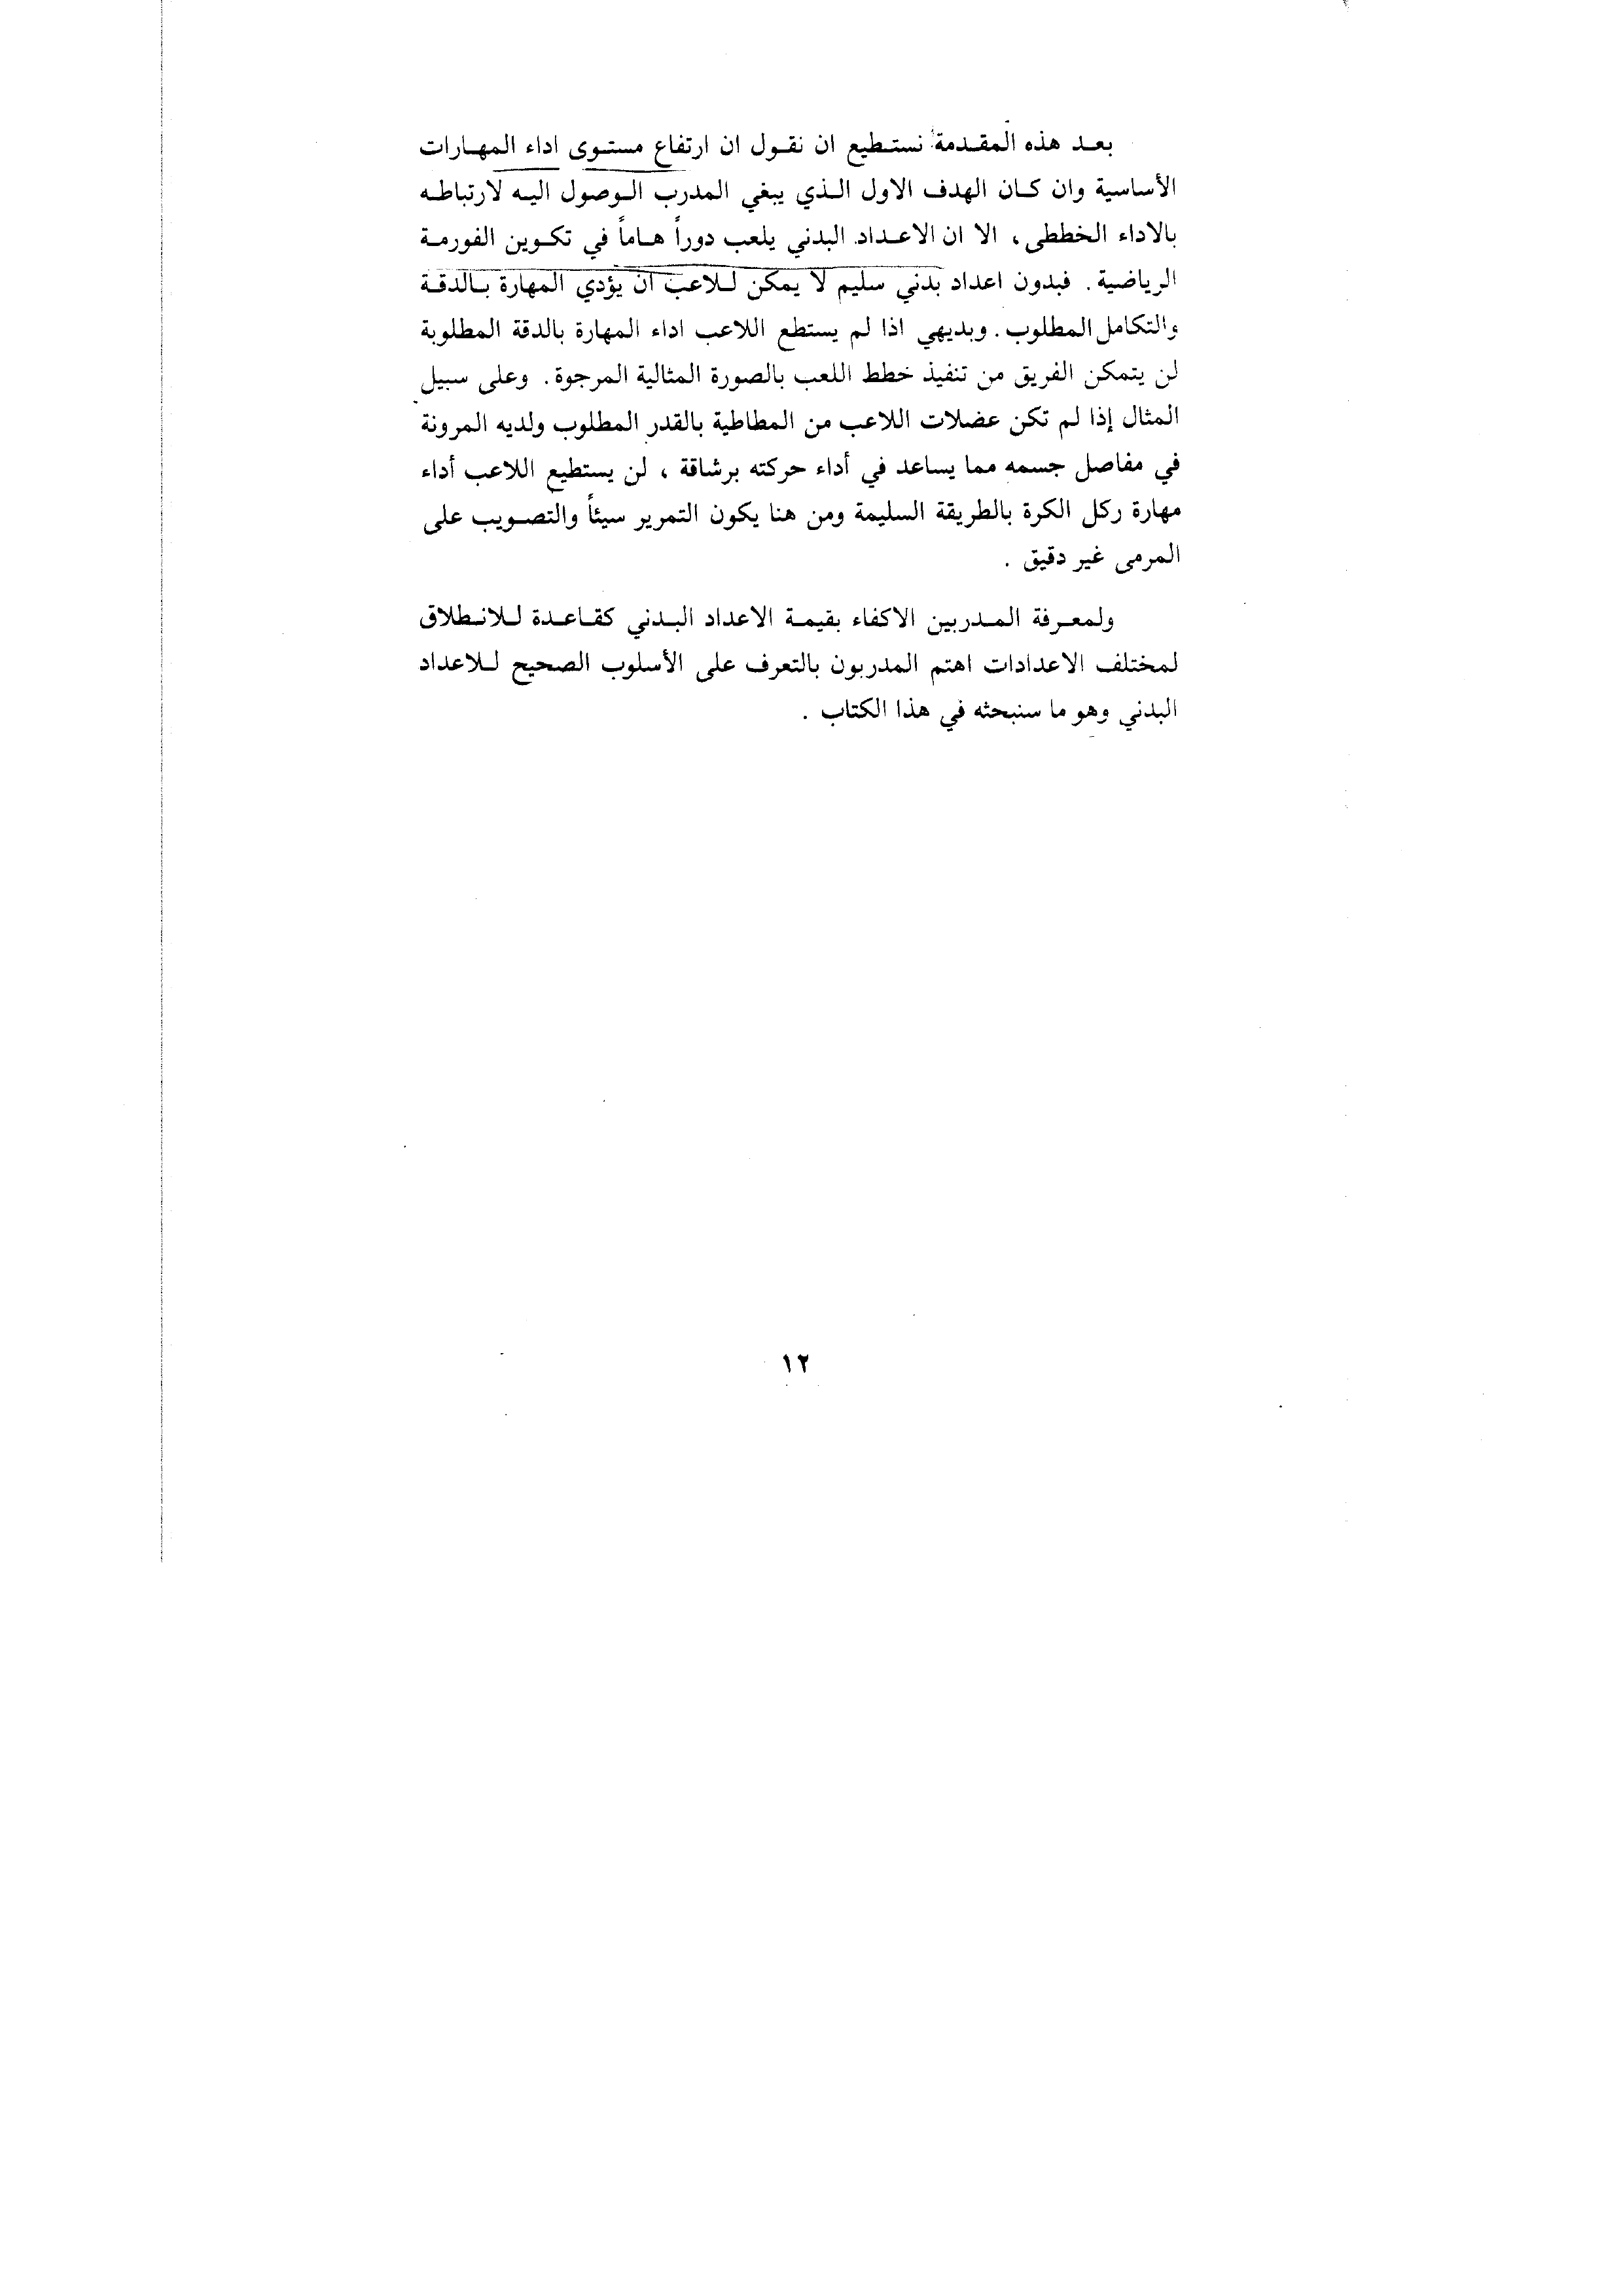 بعد هذه المقدمة نستطيع ان نقول ان ارتفاع مستوى اداء المهارات
الأساسية وان كان الهدف الاول الذي يبغي المدرب الوصول اليه لارتباطه
بالاداء الخططى ، الا ان الاعداد البدني يلعب دوراً هاماً في تكوين الفورمة
الرياضية . فبدون اعداد بدني سليم لا يمكن للاعب ان يؤدي المهارة بالدقة
والتكامل المطلوب . وبديهي اذا لم يستطع اللاعب اداء المهارة بالدقة المطلوبة
لن يتمكن الفريق من تنفيذ خطط اللعب بالصورة المثالية المرجوة . وعلى سبيل
المثال إذا لم تكن عضلات اللاعب من المطاطية بالقدر المطلوب ولديه المرونة
في مفاصل جسمه مما يساعد في أداء حركته برشاقة ، لن يستطيع اللاعب أداء
مهارة ركل الكرة بالطريقة السليمة ومن هنا يكون التمرير سيئاً والتصويب على
المرمى غير دقيق .
ولمعرفة المدربين الاكفاء بقيمة الاعداد البدني كقاعدة للانطلاق
لمختلف الاعدادات اهتم المدربون بالتعرف على الأسلوب الصحيح للاعداد
البدني وهو ما سنبحثه في هذا الكتاب .
١٢